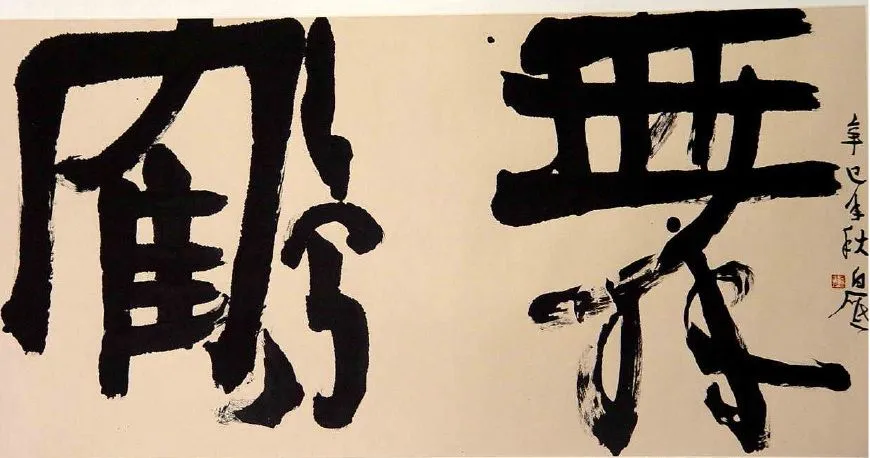 鶴舞
辛巳年秋白砥